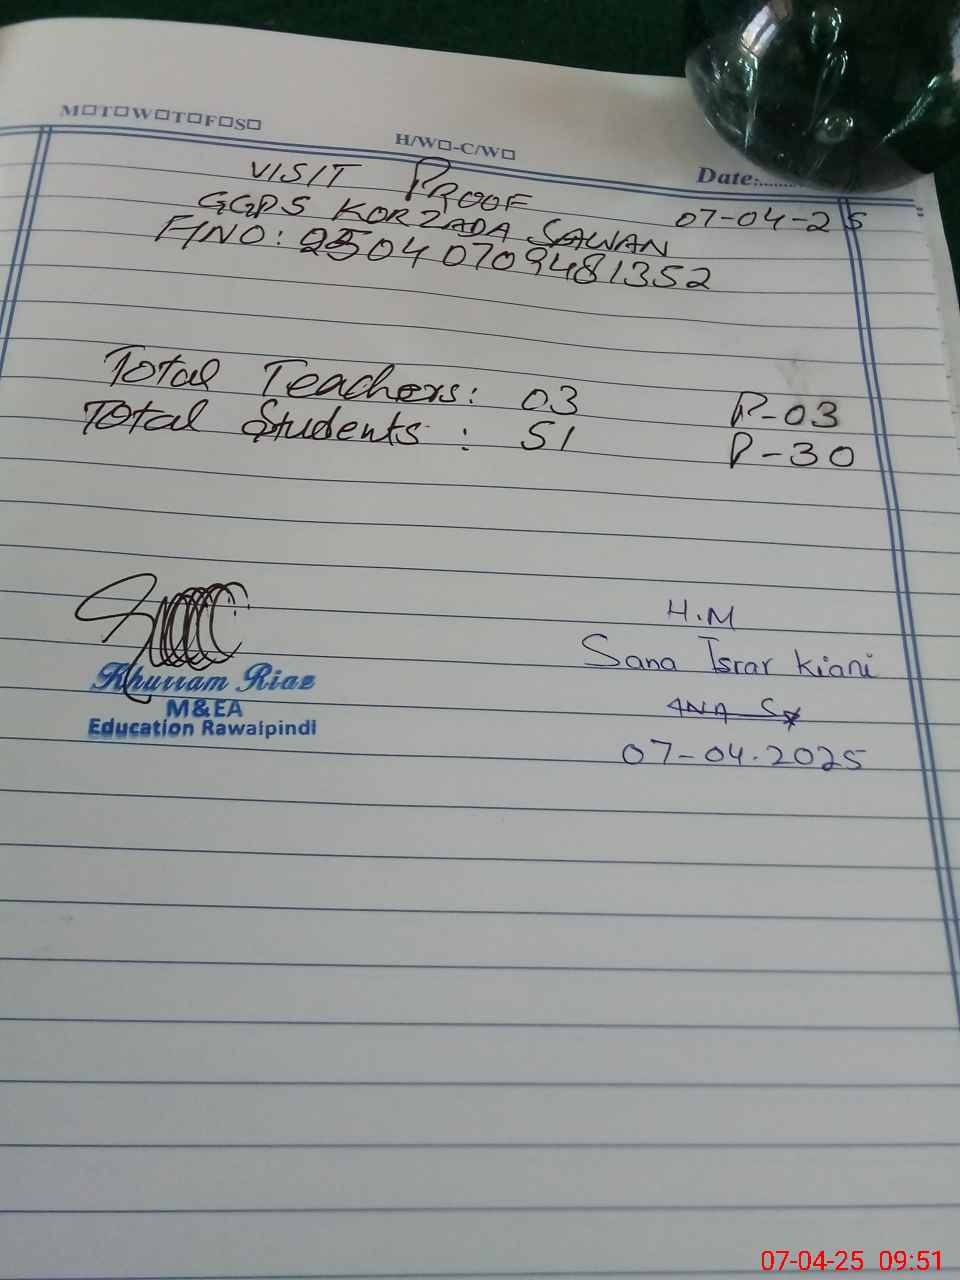 M☐T☐W☐T☐F☐S☐
H/W☐-C/W☐
Date:.........
VISIT PROOF
07-04-25
GGPS KORZADA SAWAN
F/NO: 25040709481352
Total Teachers: 03 P-03
Total Students: 51 P-30
H.M
Sana Israr Kiani
07-04.2025
Khurram Riaz
M&EA
Education Rawalpindi
07-04-25 09:51